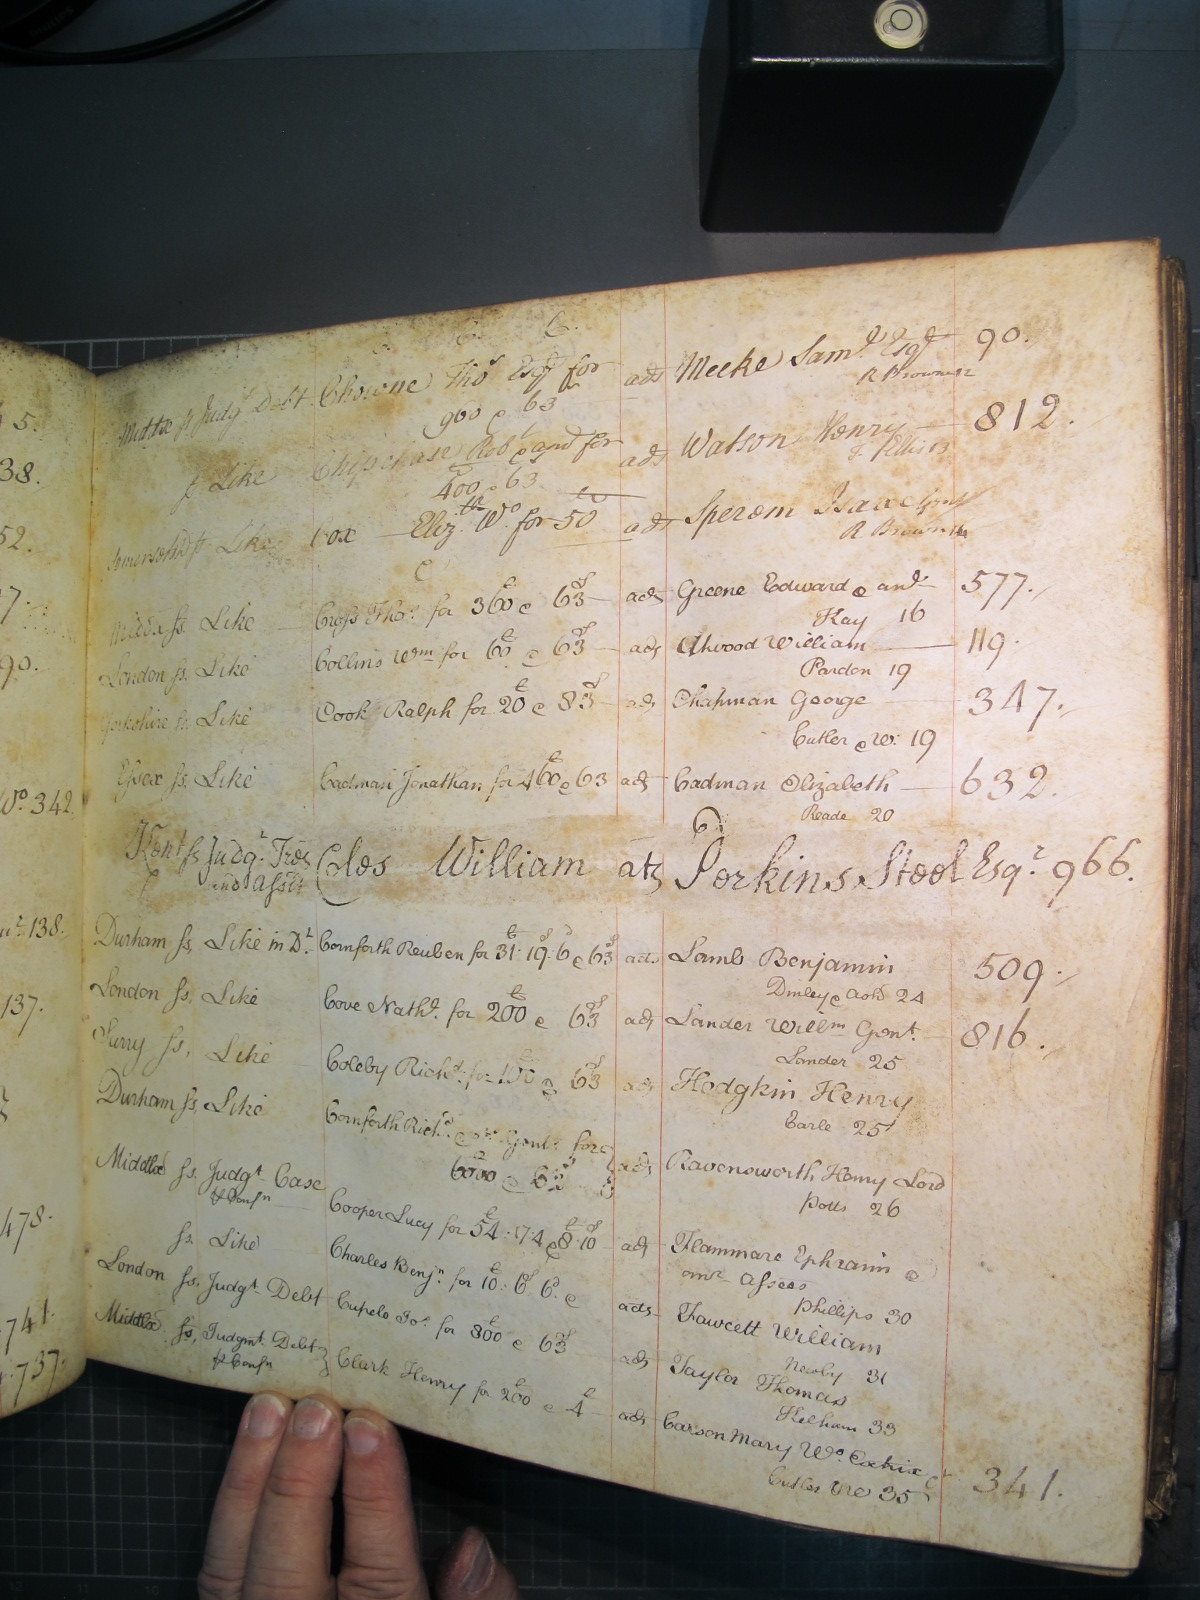 5.
38.
52.
7.
90.
Wo. 342
138.
137.
478.
741.
737.
Middx ss Judgt Debt Chowne Thos Esqr for ads Meeke Saml Esqr 90.
900 e 63 R Browne 12
ss Like Chipchase Robt and for ads Watson Henry 812.
400 e 63 Ellis 13
Somersetsh ss Like Cox Eliz. Wo. for 50 ads Isaac Gent
R Browne 14
Middx ss. Like Cross Thos. for 360 e 63 ads Greene Edward e anr 577.
Kay 16
London ss. Like Collins Wm for 60 e 63 ads Atwood William 119.
Pardon 19
Yorkshire ss. Like Cook Ralph for 20 e 83 ads Chapman George 347.
Cutler e W. 19
Essex ss. Like Cadman Jonathan for 460 e 63 ads Cadman Elizabeth 632.
Reade 20
Kent ss Judgt. Tres Coles William ats Perkins Steel Esqr 966.
and Asslt
Durham ss. Like in Dt. Cornforth Reuben for 31. 19. 6 e 63 ads Lamb Benjamin 509.
24
London ss. Like Cove Nathl. for 200 e 63 ads Lander Willm Gent. 816.
Lander 25
Surry ss. Like Coleby Richd. for 100 e 63 ads Hodgkin Henry
Earle 25
Durham ss. Like Cornforth Richd. Gent. for
6000 e 63 ads Ravensworth Henry Lord
Potts 26
Middlx ss. Judgt. Case Cooper Lucy for 54. 17. 4 e 8. 10 ads Flammare Ephraim e
& Confn anr Assees
Phillips 30
ss. Like Charles Benjn. for 10. 6. 6. e ads Fawcett William
Newby 31
London ss. Judgt. Debt Cupelo Jos. for 800 e 63 ads Taylor Thomas
Kelham 33
Middlx ss. Judgmt. Debt Clark Henry for 200 e 4 ads Carson Mary Wo. Extrix 341.
& Confn Cutler W 35